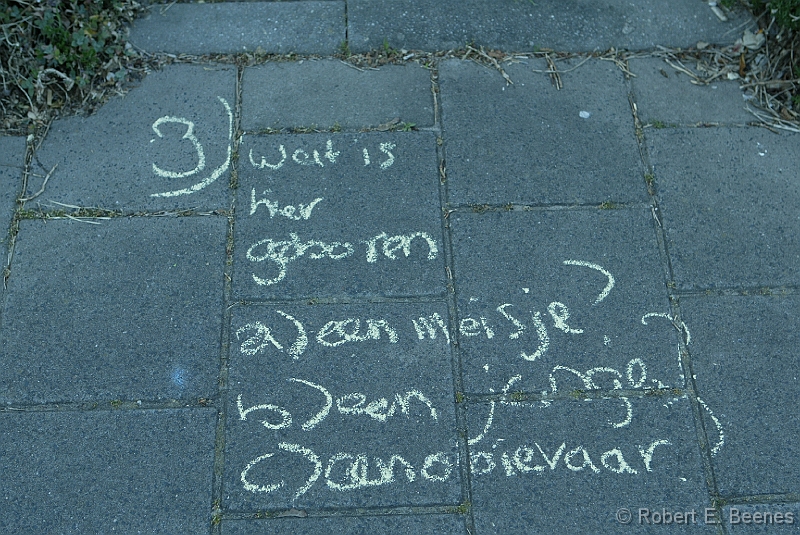 3) wat is
hier
geboren
a) een meisje?
b) een jongen?
c) een ooievaar
© Robert E. Beenes